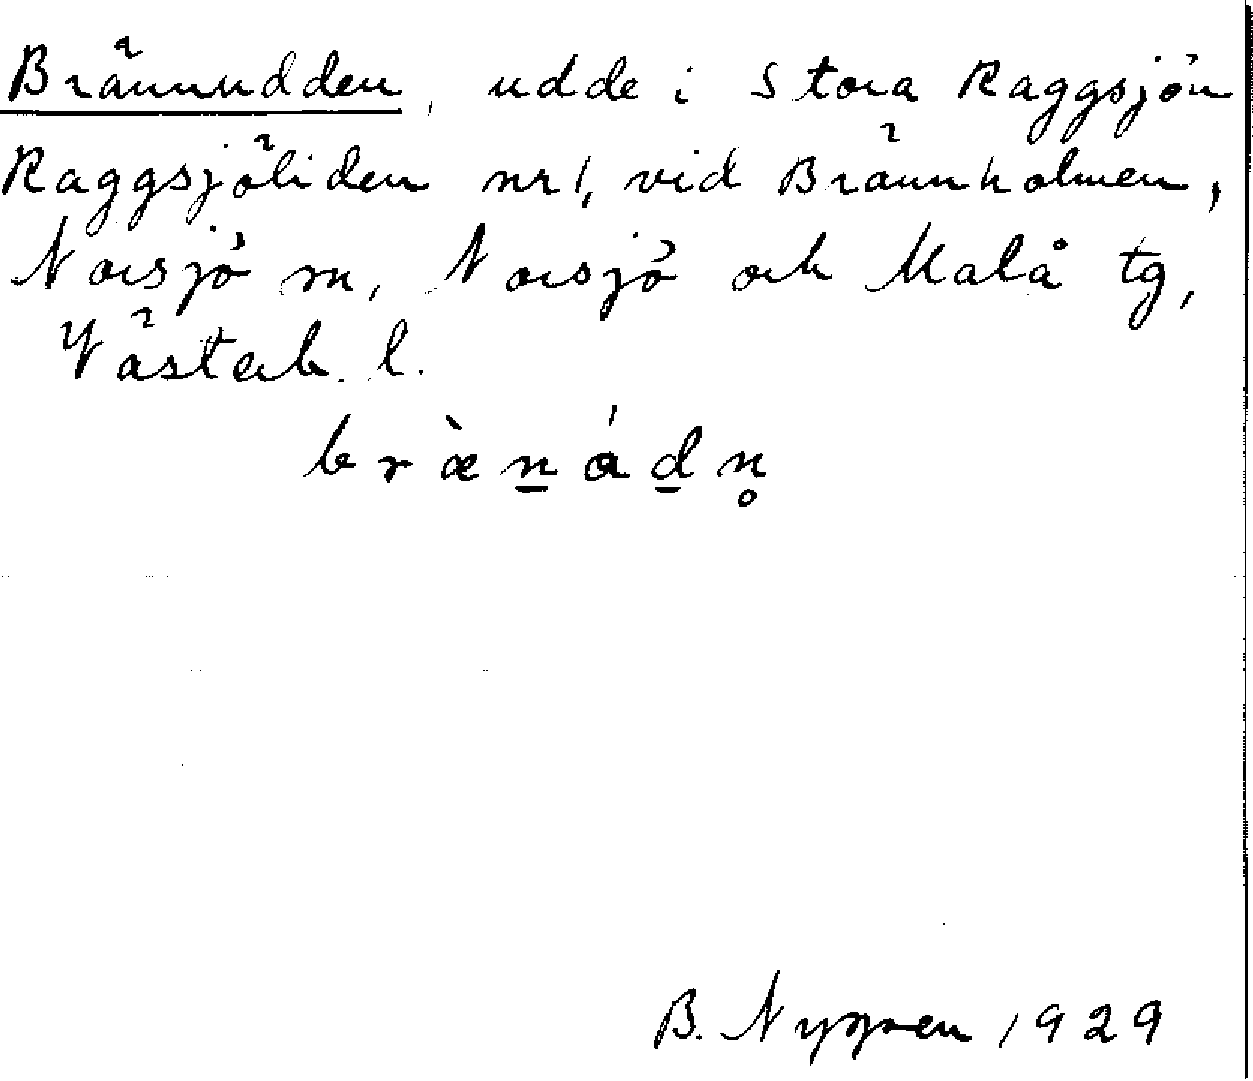 Brännudden, udde i Stora Raggsjön
Raggsjöliden nr 1, vid Brännholmen,
Norsjö sn, Norsjö och Malå tg,
Västerb. l.
bræ̀n̲ɑ́d̲n̥
B. Nygren 1929